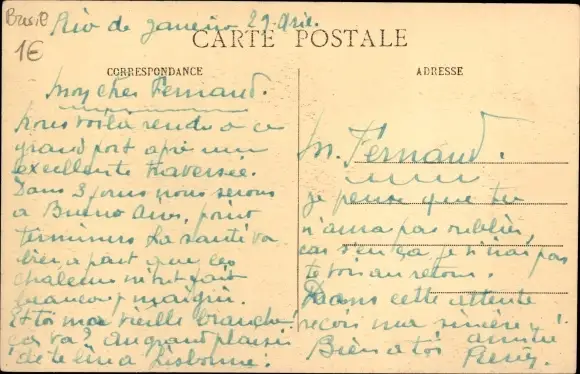 Brésil
1€
Rio de Janeiro 29 Avril.
CARTE POSTALE
CORRESPONDANCE
ADRESSE
Mon cher Fernand.
Nous voilà rendu a ce
grand port apre une
excellente traversée.
Dans 3 jours nous serons
a Buenos Aires, point
terminus La santé va
bien a part que ces
chaleurs m'ont fait
beaucoup maigrir.
Et toi ma vieille branche
ça va? Au grand plaisir
de te lire a Lisbonne.
M. Fernand.
je pense que tu
n'aura pas oublier,
car s'en ça je n'irai pas
te voir au retour.
Dans cette attente
reçois ma sincère
amitié
Bien a toi